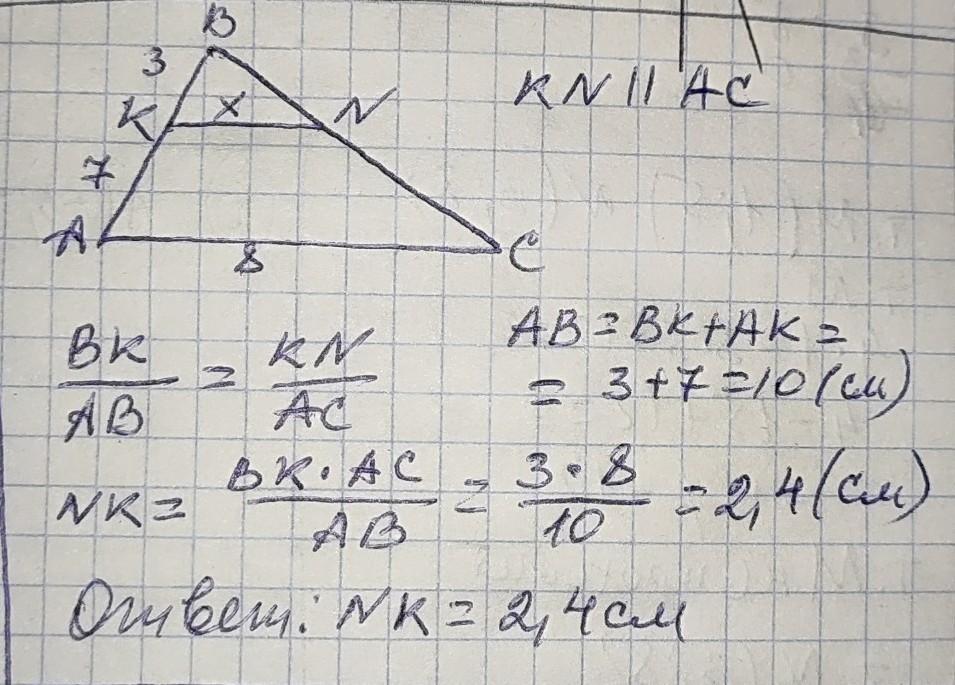 B
3
K x N KN || AC
7
A 8 C
BK/AB = KN/AC
AB = BK + AK =
= 3 + 7 = 10 (см)
NK = BK · AC/AB = 3 · 8/10 = 2,4 (см)
Ответ: NK = 2,4 см